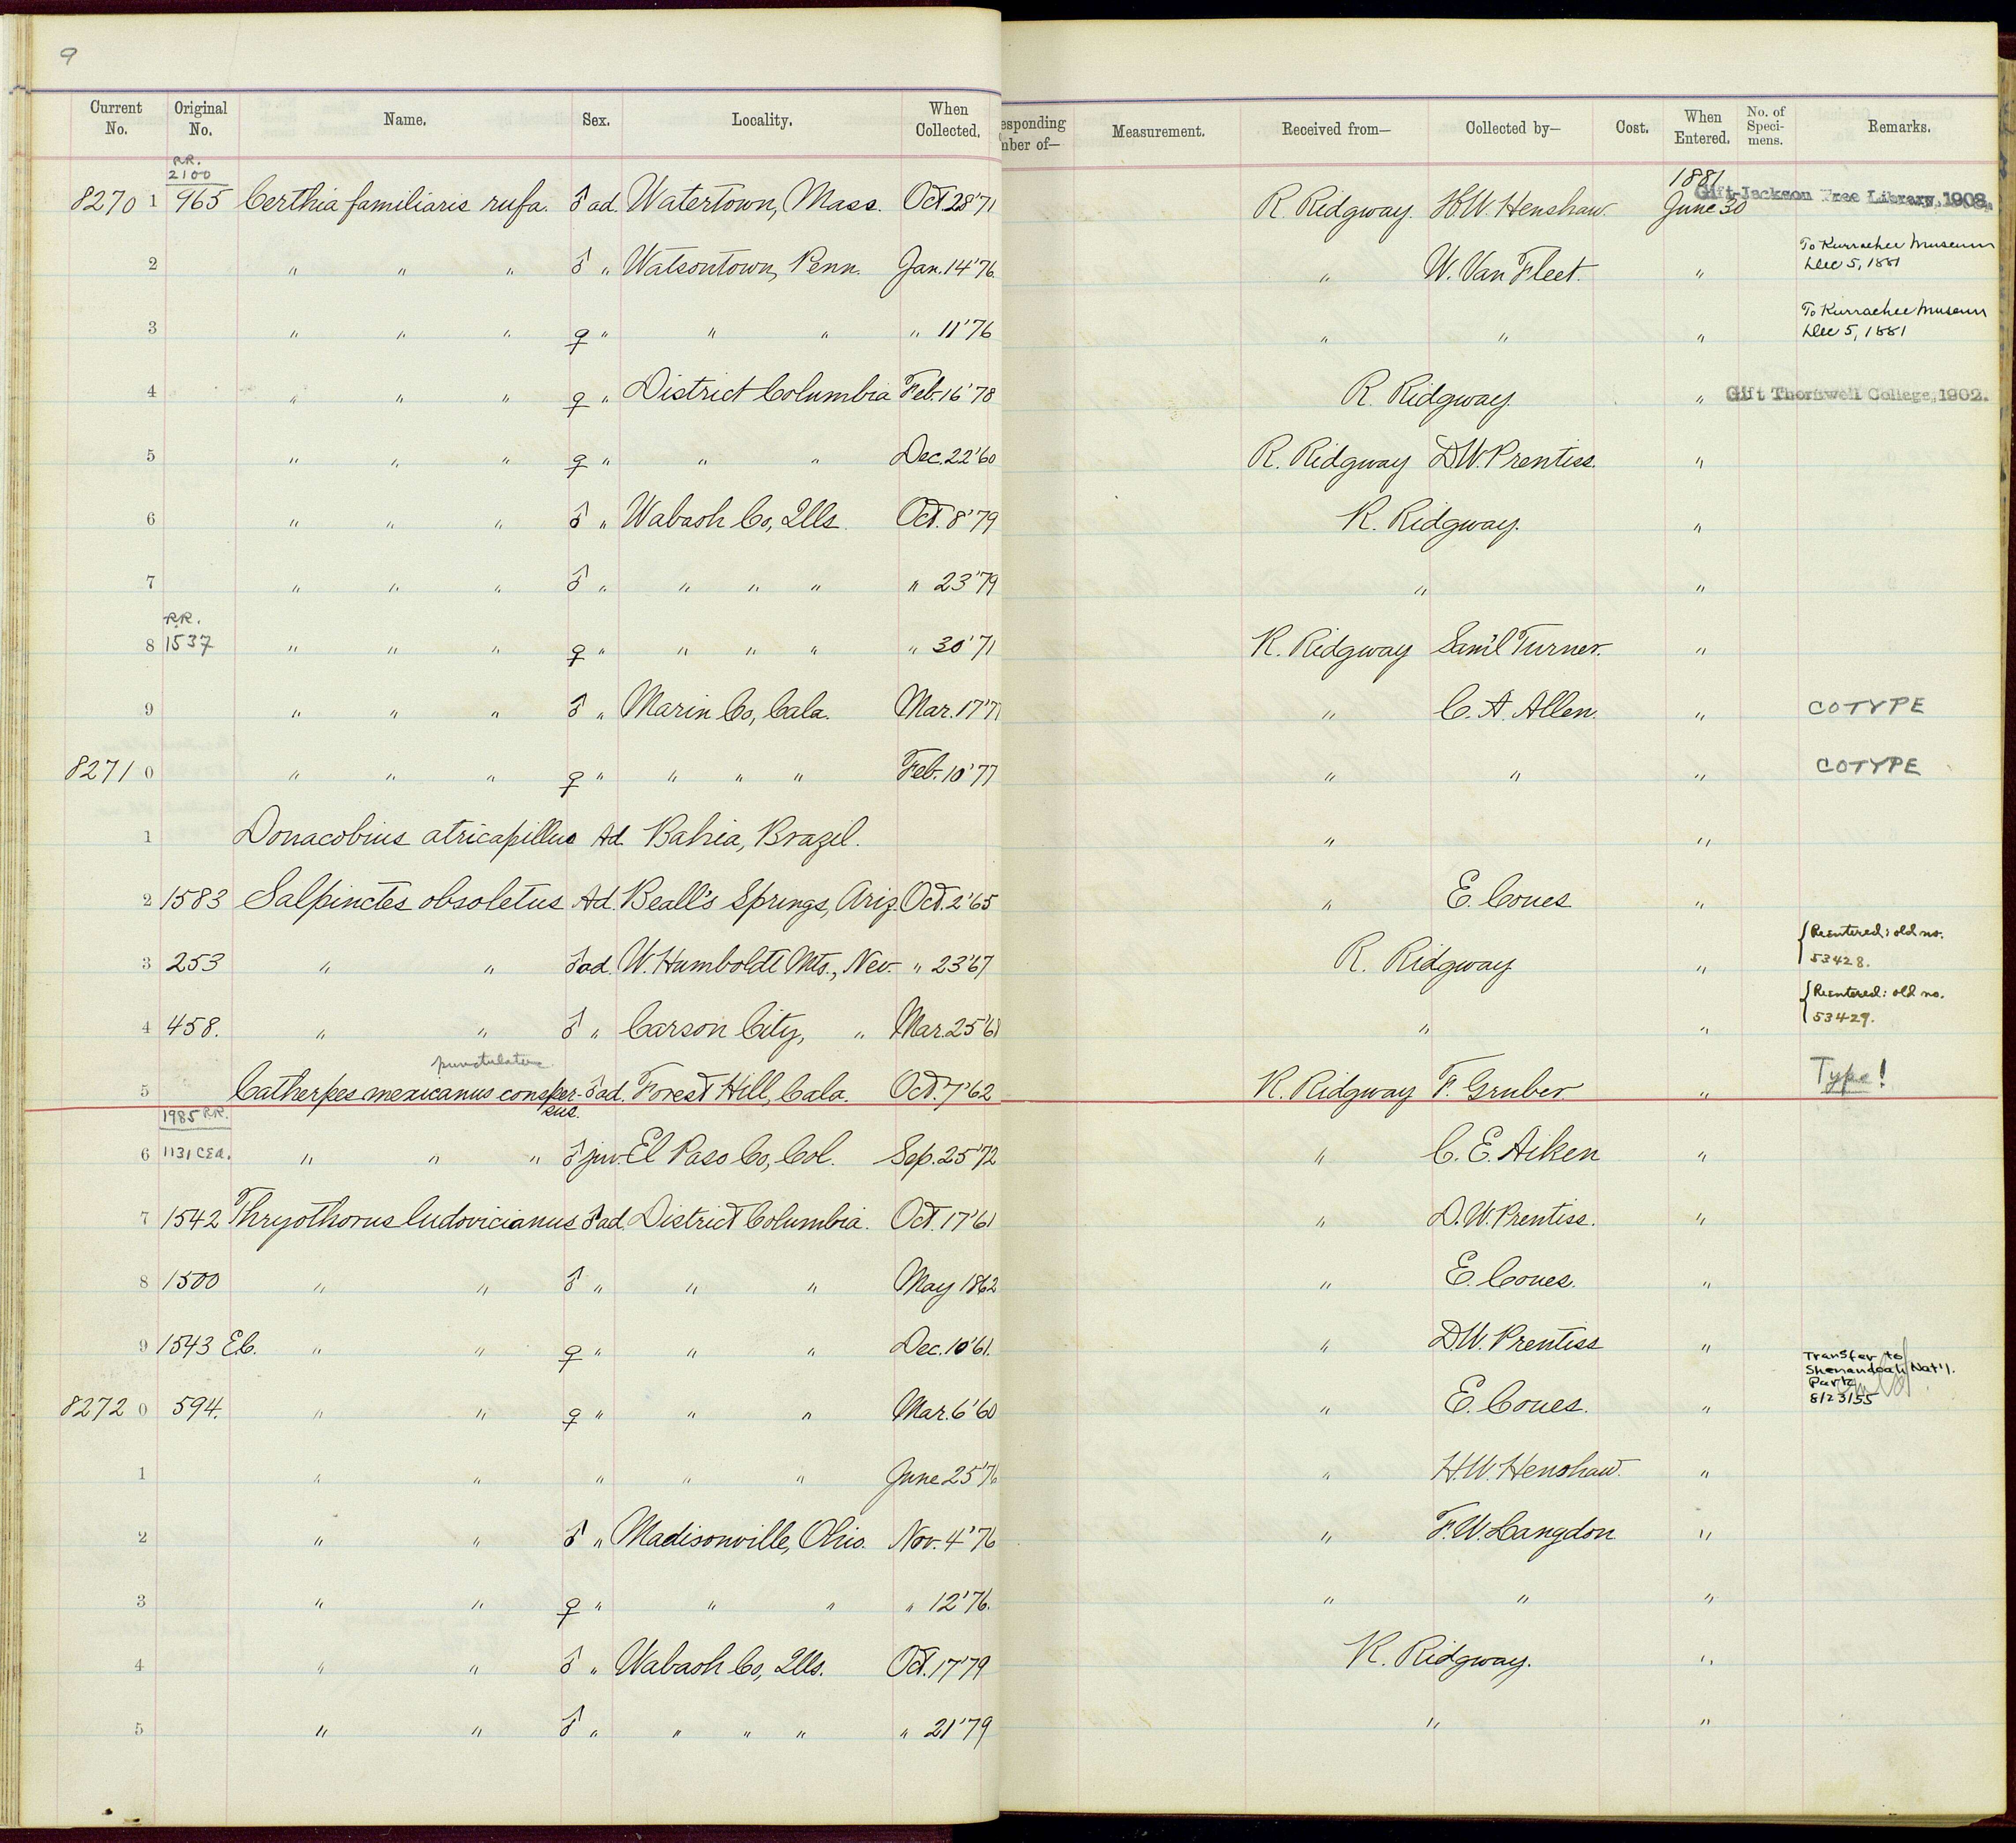 9
Current No. Original No. Name. Sex. Locality. When Collected. esponding mber of— Measurement. Received from— Collected by— Cost. When Entered. No. of Speci-mens. Remarks.
R.R.
2100
1881
8270 1 965 Certhia familiaris rufa. ♂ ad. Watertown, Mass. Oct. 28 '71 R. Ridgway H.W. Henshaw June 30 Gift Jackson Free Library, 1908.
2 " " " ♂ " Watsontown, Penn. Jan. 14 '76 " W. Van Fleet. " To Kurrachee Museum Dec 5, 1881
3 " " " ♀ " " " " 11 '76 " " " To Kurrachee Museum Dec 5, 1881
4 " " " ♀ " District Columbia Feb. 16 '78 R. Ridgway. " Gift Thornwell College, 1902.
5 " " " ♀ " " " Dec. 22 '60 R. Ridgway D.W. Prentiss. "
6 " " " ♂ " Wabash Co, Ills. Oct. 8 '79 R. Ridgway. "
7 " " " ♂ " " " " " 23 '79 " "
R.R.
8 1537 " " " ♀ " " " " " 30 '71 R. Ridgway Sam'l Turner. "
9 " " " ♂ " Marin Co, Cala. Mar. 17 '7 " C. A. Allen. " COTYPE
8271 0 " " " ♀ " " " " Feb. 10 '77 " " " COTYPE
1 Donacobius atricapillus Ad. Bahia, Brazil. " "
2 1583 Salpinctes obsoletus Ad. Beall's Springs, Ariz. Oct. 2 '65 " E. Coues "
3 253 " " ♂ ad. W. Humboldt Mts., Nev. " 23 '67 R. Ridgway " Reentered: old no. 53428.
4 458. " " ♂ " Carson City, " Mar. 25 '6 " " Reentered: old no. 53429.
punctulatus
5 Catherpes mexicanus consper-sus. ♂ ad. Forest Hill, Cala. Oct. 7 '62 R. Ridgway F. Gruber " Type!
1985 R.R.
6 1131 CEA. " " " ♂ juv. El Paso Co, Col. Sep. 25 '72 " C. E. Aiken "
7 1542 Thryothorus ludovicianus ♂ ad. District Columbia. Oct. 17 '61 " D.W. Prentiss. "
8 1500 " " ♂ " " " May 1862 " E. Coues. "
9 1543 E.C. " " ♀ " " " Dec. 10 '61. " D.W. Prentiss "
8272 0 594. " " ♀ " " " Mar. 6 '60 " E. Coues. " Transfer to Shenandoah Nat'l. Park 8/23/55
1 " " " " " June 25 '76 " H.W. Henshaw. "
2 " " ♂ " Madisonville, Ohio. Nov. 4 '76 " F.W. Langdon "
3 " " ♀ " " " " 12 '76. " " "
4 " " ♂ " Wabash Co, Ills. Oct. 17 '79 R. Ridgway. "
5 " " ♂ " " " " " 21 '79 " "